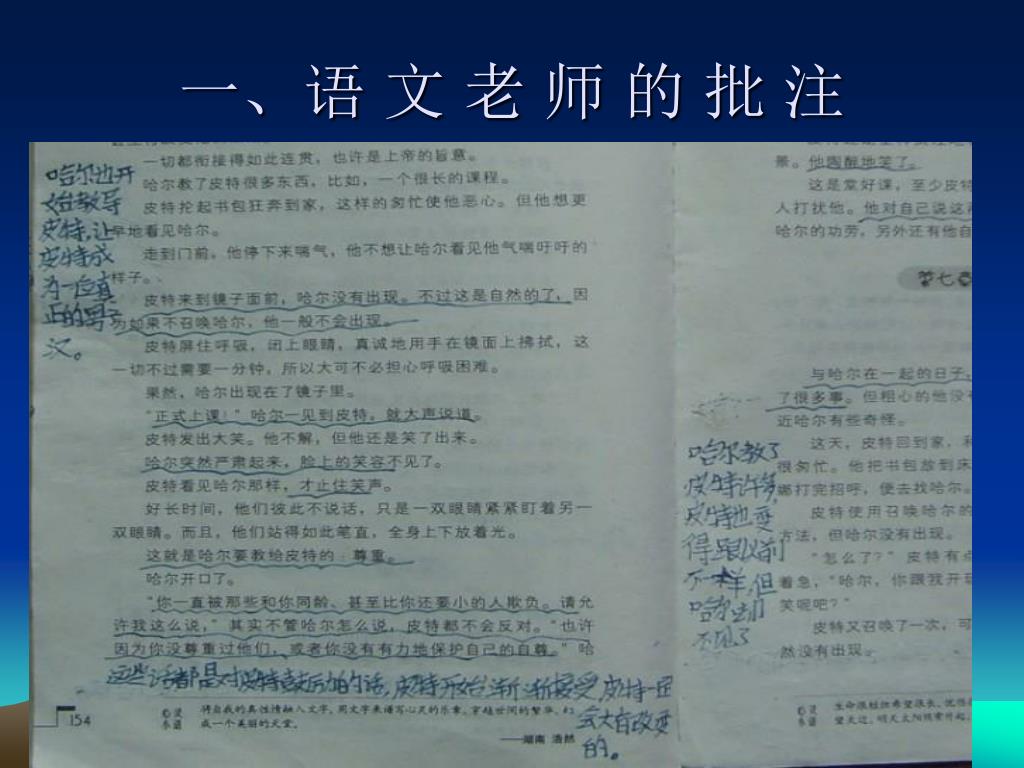 一、语文老师的批注
一切都衔接得如此连贯，也许是上帝的旨意。
哈尔教了皮特很多东西，比如，一个很长的课程。
皮特抡起书包狂奔到家，这样的匆忙使他恶心。但他想更
早地看见哈尔。
走到门前，他停下来喘气，他不想让哈尔看见他气喘吁吁的
样子。
皮特来到镜子面前，哈尔没有出现。不过这是自然的了，因
为如果不召唤哈尔，他一般不会出现。
皮特屏住呼吸，闭上眼睛，真诚地用手在镜面上拂拭，这
一切不过需要一分钟，所以大可不必担心呼吸困难。
果然，哈尔出现在了镜子里。
“正式上课！”哈尔一见到皮特，就大声说道。
皮特发出大笑。他不解，但他还是笑了出来。
哈尔突然严肃起来，脸上的笑容不见了。
皮特看见哈尔那样，才止住笑声。
好长时间，他们彼此不说话，只是一双眼睛紧紧盯着另一
双眼睛。而且，他们站得如此笔直，全身上下放着光。
这就是哈尔要教给皮特的：尊重。
哈尔开口了。
“你一直被那些和你同龄、甚至比你还要小的人欺负。请允
许我这么说，”其实不管哈尔怎么说，皮特都不会反对。“也许
因为你没尊重过他们，或者你没有有力地保护自己的自尊。”哈
哈尔也开
始教导
皮特，让
皮特成
为一位真
正的男子
汉。
这些话都是对皮特鼓励的话，皮特开始渐渐接受，皮特一定
会大有改变
的。
154
心灵
将自我的真性情融入文字，用文字来谱写心灵的乐章，穿越世间的繁华，
成一个美丽的天堂。
——湖南 浩然
景。他陶醉地笑了。
这是堂好课，至少皮特
人打扰他。他对自己说这
哈尔的功劳，另外还有他自
第七章
与哈尔在一起的日子，
了很多事。但粗心的他没
近哈尔有些奇怪。
这天，皮特回到家，和
很匆忙。他把书包放到床
娜打完招呼，便去找哈尔。
皮特使用召唤哈尔的
方法，但哈尔没有出现。
“怎么了？”皮特有点
着急，“哈尔，你跟我开玩
笑呢吧？”
皮特又召唤了一次，可
然没有出现。
哈尔教了
皮特许多，
皮特也变
得跟以前
不一样，但
哈尔却
不见了
心灵